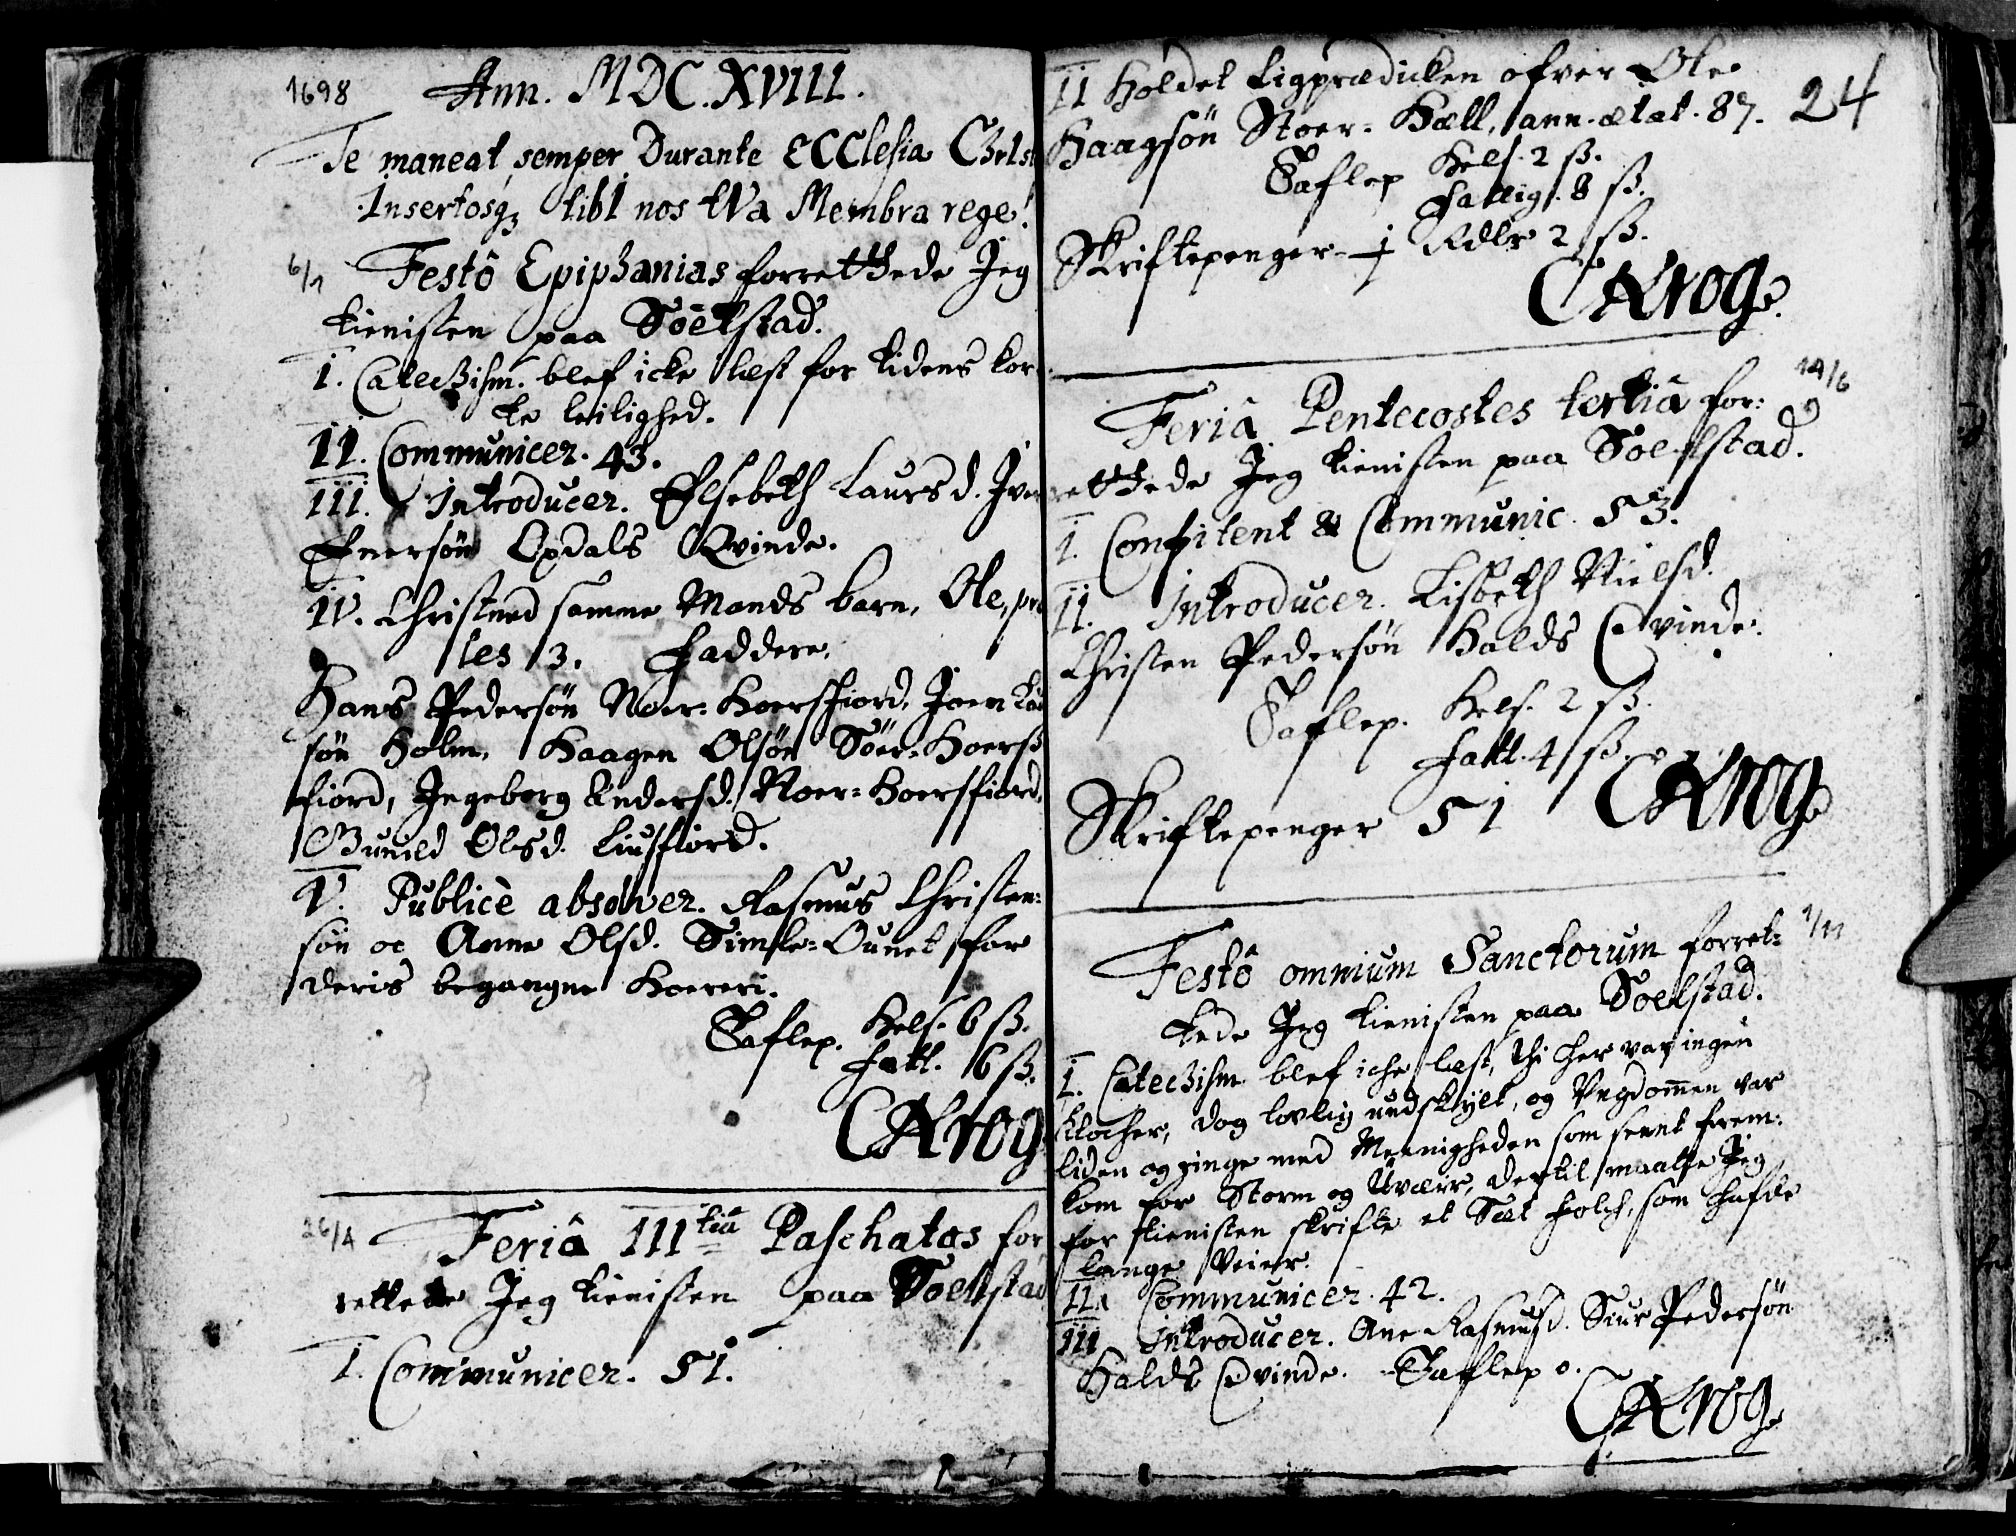 1698 Ann. MDC.XVIII.
Te maneat semper Durante ECClesia ChrIst
Insertosq3 tibI nos tVa Membra rege!
6/1 Festô Epiphanias forretthede Jeg
tienisten paa Söelstad.
I. Catechism. blef icke læst for tidens kor
te leilighed.
II. Communicer. 43.
III. Introducer. Elsebeth Laursd. Iver
Enersön Opdals Qvinde.
IV. Christned samme Mands barn, Ole, pr
les 3. Faddere.
Hans Pedersön Noer-Hoersfiord, Joen
sön Holm, Haagen Olsön Söer-Hoers
fiord, Ingeborg Andersd. Noer-Hoersfiord,
Gunild Olsd. Liusfiord.
V. Publicè absolver. Rasmus Christen:
sön oc Anne Olsd. Simle-Ounet, for
deris begangne Hoereri.
Taflep. Kels. 6 ß.
Fatt. 6 ß.
CKrog
26/4 Feriâ III tiâ Paschatos for
rettede Jeg tienisten paa Soelstad
I. Communicer. 51.
II Holdet Ligprædicken ofver Ole 24
Haagsön Stoer-Hæll, ann. ætat. 87.
Taflep Kels. 2 ß.
Fattig. 8 ß.
Skriftepenger - 1 Rdlr 2 ß.
CKrog.
14/6
Feriâ Pentecostes tertiâ for:
retthede Jeg tienisten paa Soelstad.
I. Confitent & Communic. 53.
II. Introducer. Lisbeth Nielsd.
Christen Pedersön Halds Qvinde.
Taflep. Kels. 2 ß.
Fatt. 4 ß.
Skriftepenger 51 CKrog
Festô omnium Sanctorum forret: 1/11
tede Jeg tienisten paa Soelstad.
I. Catechism blef iche læst, thi her var ingen
klocker, dog lovlig undskylt, og Ungdommen var
liden og ringe med Meenigheden som seent frem:
kom for Storm og Uvæir, dertil maatte Jeg
for tienisten skrifte et Sæt folch, som hafde
lange Veier.
II. Communicer. 42.
III Introducer. Ane Rasmusd. Siur Pedersön
Halds Qvinde. Taflep 0.
CKrog